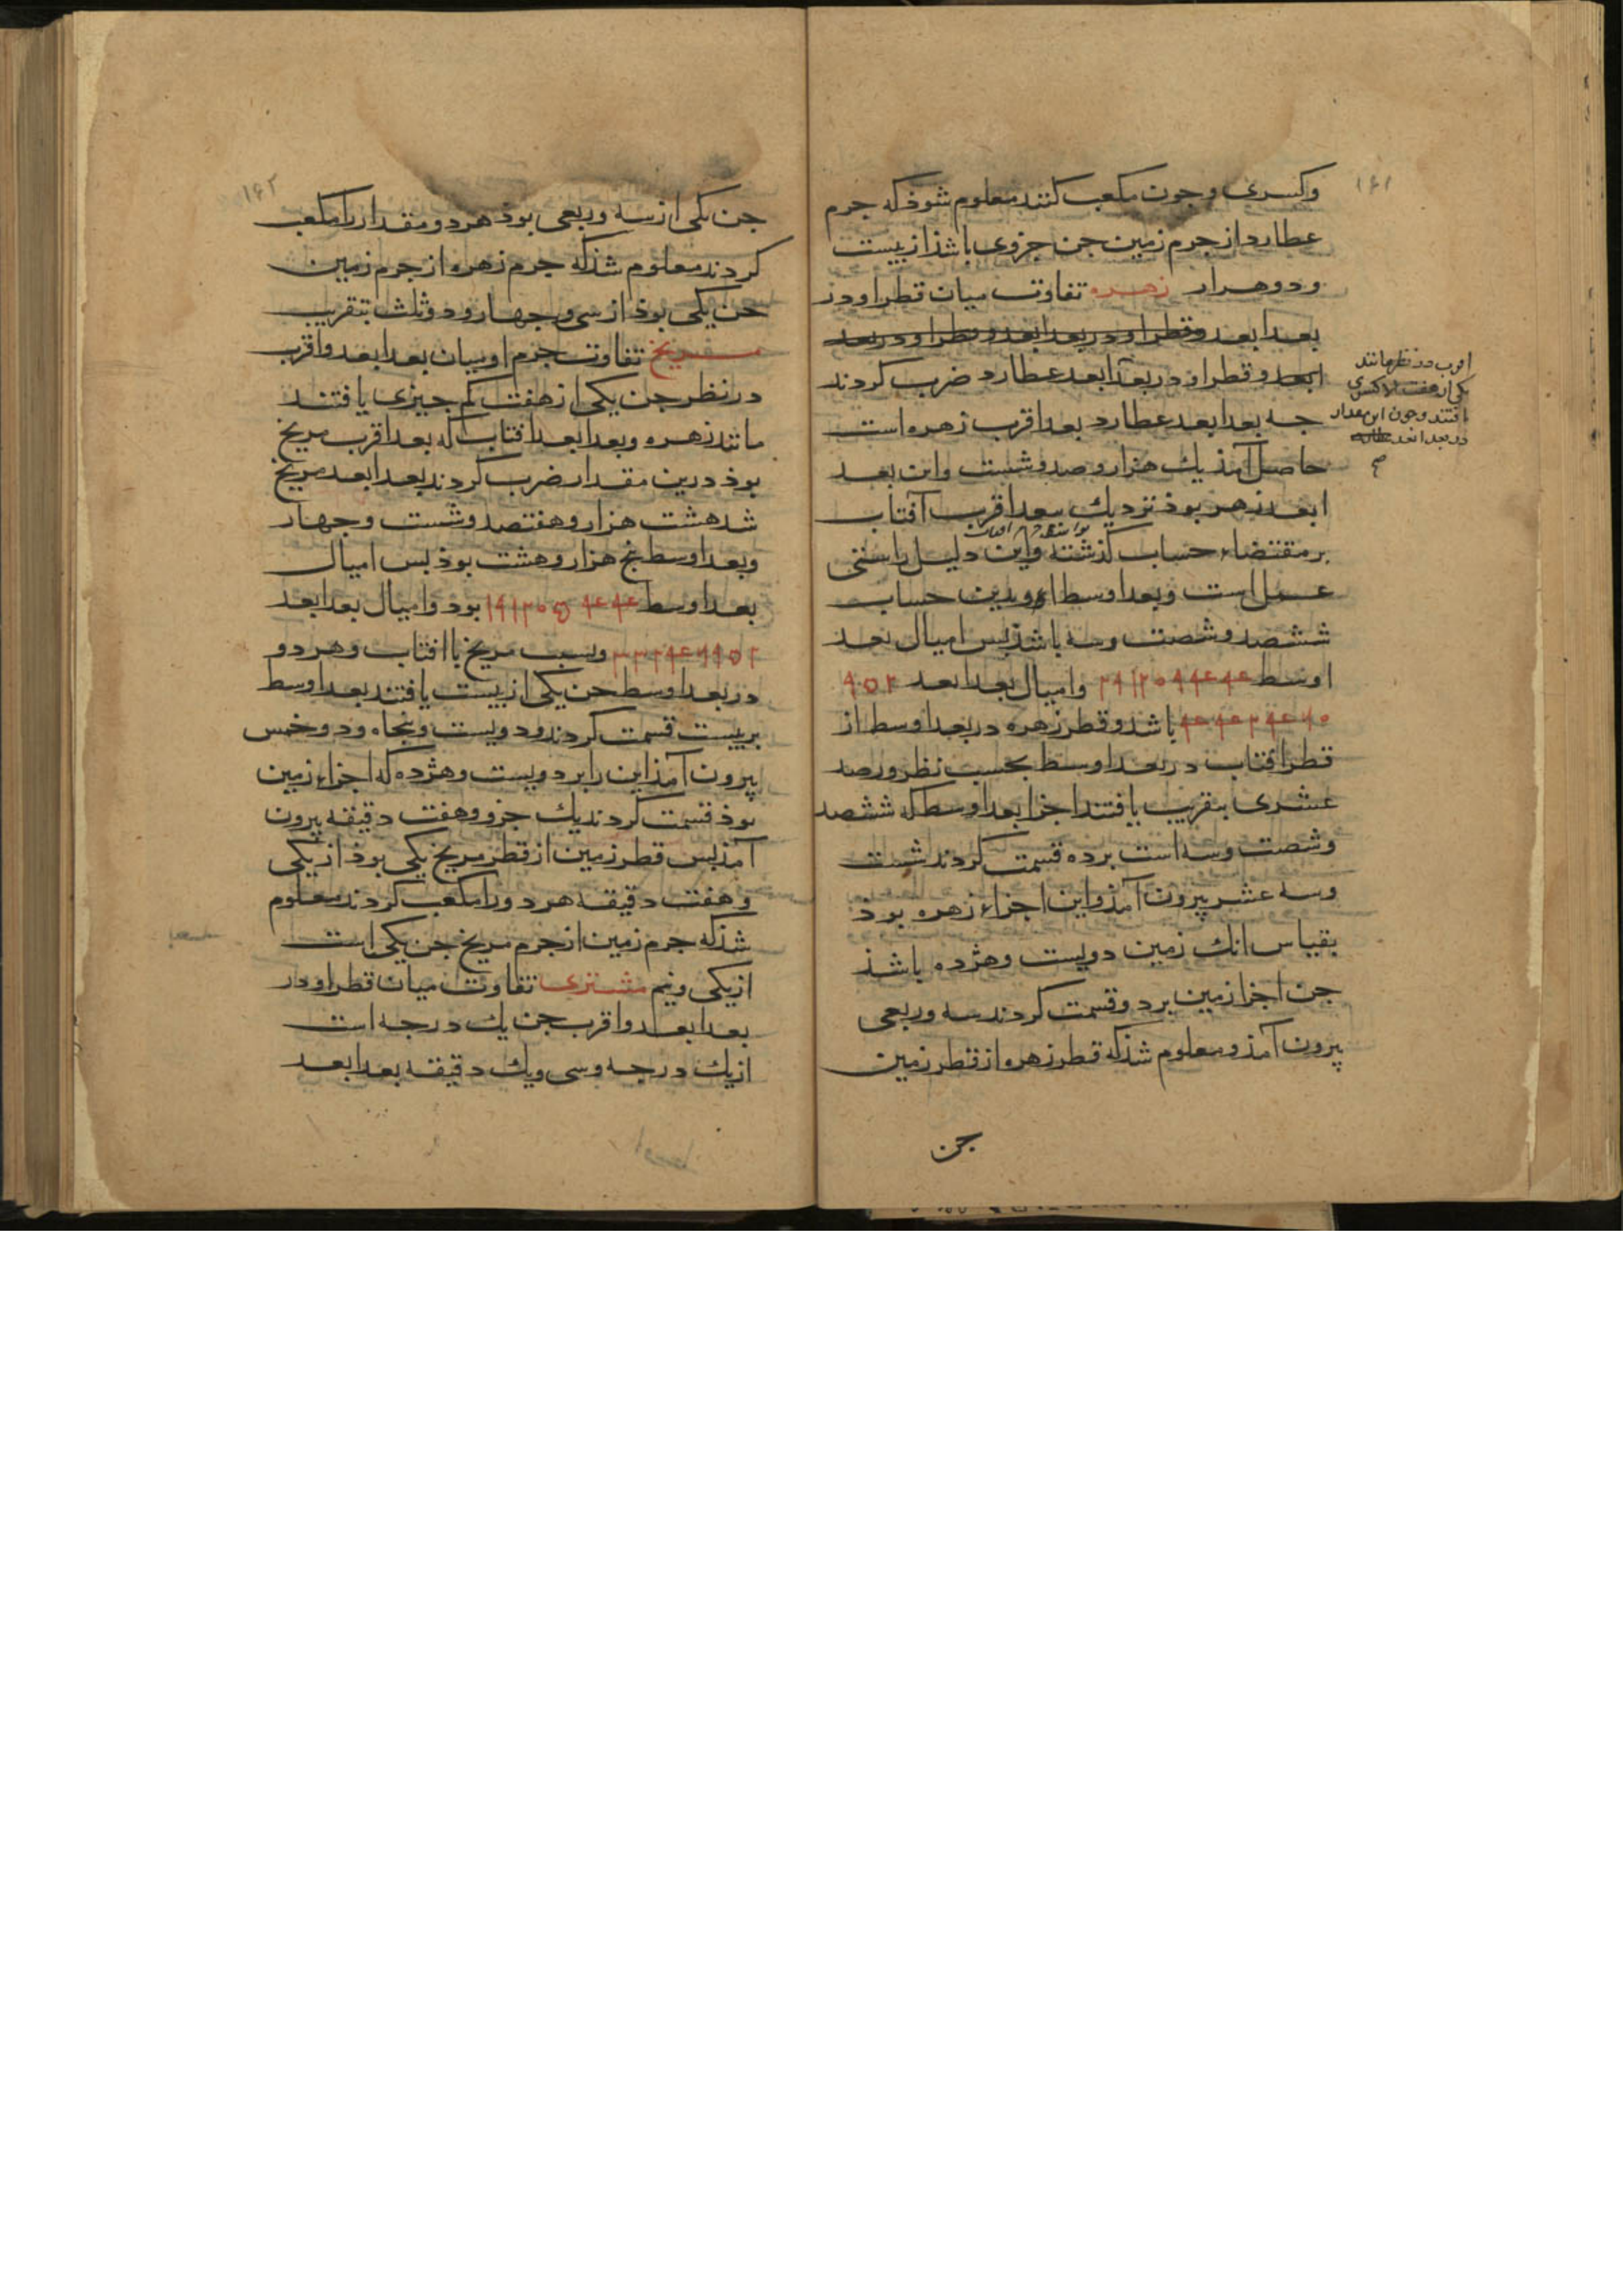 ۱۶۱
وکسری وجون مکعب کنند معلوم شوذ که جرم
عطارد از جرم زمین جن جزوی باشذ از بیست
ودو هزار زهره تفاوت میان قطر او در
بعد ابعد وقطر او در بعد ابعد وقطر او در بعد
ابعد وقطر او در بعد ابعد عطارد ضرب کردند
جه بعد ابعد عطارد بعد اقرب زهره است
حاصل آمذ یك هزار وصد وشست واین بعد
ابعد زهره بوذ نزدیك ببعد اقرب آفتاب
بر مقتضاء حساب گذشته واین دلیل راستی
عمل است وبعد اوسط او بدین حساب
ششصد وشصت وسه باشذ بس امیال بعد
اوسط وامیال بعد ابعد
باشد وقطر زهره در بعد اوسط از
قطر افتاب در بعد اوسط بحسب نظر ورصد
عشری بتقریب یافتند اجزا بعد اوسط که ششصد
وشصت وسه است برده قسمت کردند شست
وسه عشر بیرون آمذ واین اجزاء زهره بوذ
بقیاس انك زمین دویست وهژده باشذ
جن اجزا زمین برد وقسمت کردند سه وربعی
بیرون آمذ ومعلوم شذ که قطر زهره از قطر زمین
جن
اقرب در نظر مانند
یکی از هفت الا کسری
یافتند وجون این مقدار
در بعد ابعد
۱۶۲
جن یکی از سه وربعی بوذ هر دو مقدار را مکعب
کردند معلوم شذ که جرم زهره از جرم زمین
جن یکی بوذ از سی وجهار ودو ثلث بتقریب
مریخ تفاوت جرم او میان بعد ابعد واقرب
در نظر جن یکی از هفت کم جیزی یافتند
مانند زهره وبعد ابعد افتاب که بعد اقرب مریخ
بوذ درین مقدار ضرب کردند بعد ابعد مریخ
شد هشت هزار وهفتصد وشست وجهار
وبعد اوسط بنج هزار وهشت بوذ بس امیال
بعد اوسط بود وامیال بعد ابعد
ونسبت مریخ با افتاب وهر دو
در بعد اوسط جن یکی از بیست یافتند بعد اوسط
بر بیست قسمت کردند ودویست وبنجاه ودو وخمس
بیرون آمذ این را بر دویست وهژده که اجزاء زمین
بوذ قسمت کردند یك جزو وهفت دقیقه بیرون
آمذ بس قطر زمین از قطر مریخ یکی بوذ از یکی
وهفت دقیقه هر دو را مکعب کردند معلوم
شذ که جرم زمین از جرم مریخ جن یکی است
از یکی ونیم مشتری تفاوت میان قطر او در
بعد ابعد واقرب جن یك درجه است
از یك درجه وسی ویك دقیقه بعد ابعد